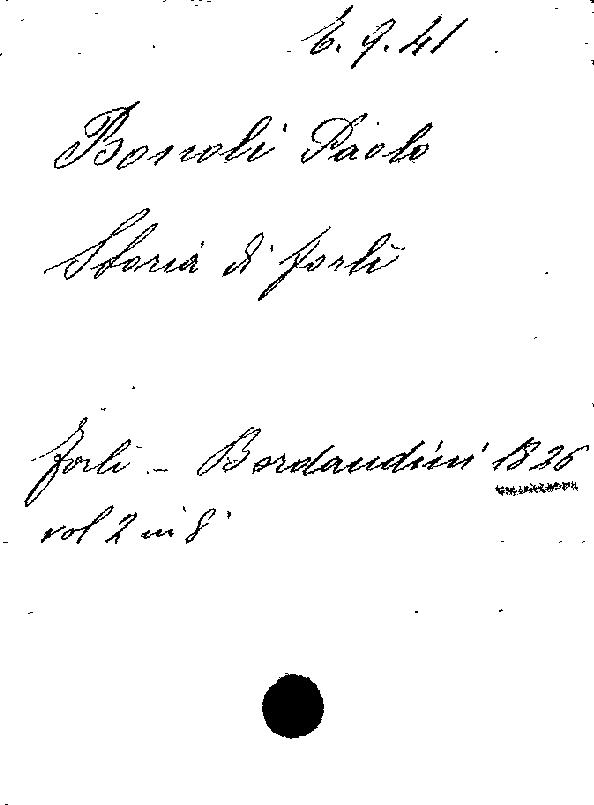 E. 9. 41
Bonoli Paolo
Storia di Forlì
Forlì - Bordandini 1826
vol 2 in 8°